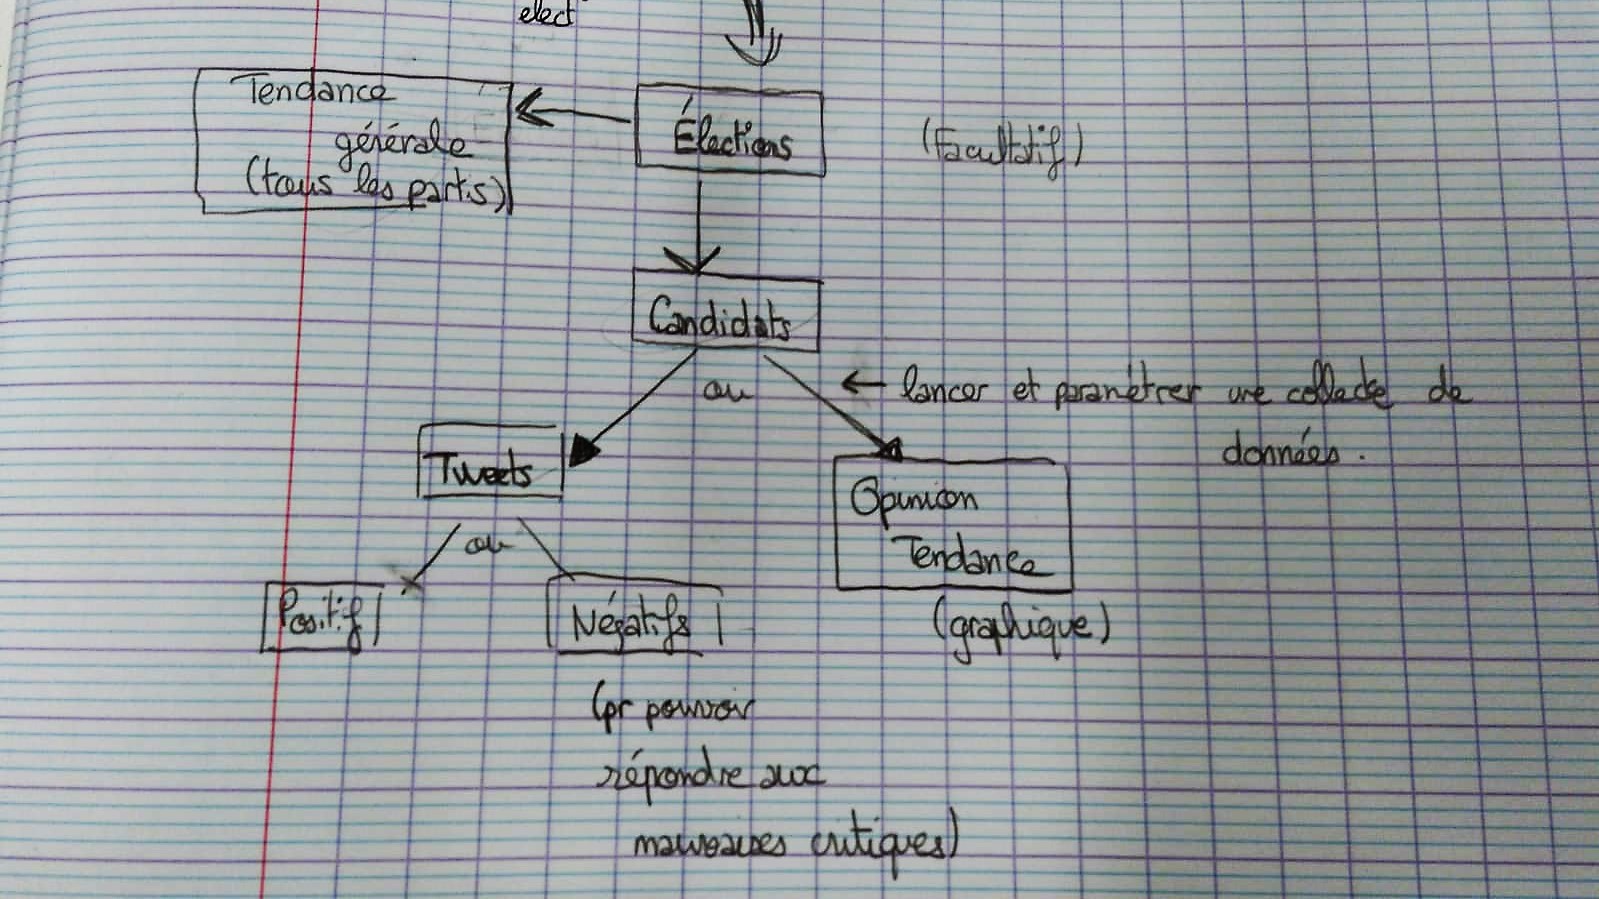 elect°
Tendance
générale
(tous les partis)
Élections
(Facultatif)
Candidats
ou
← lancer et paramétrer une collecte de
données.
Tweets
Opinion
Tendance
(graphique)
ou
Positif
Négatifs
(pr pouvoir
répondre aux
mauvaises critiques)